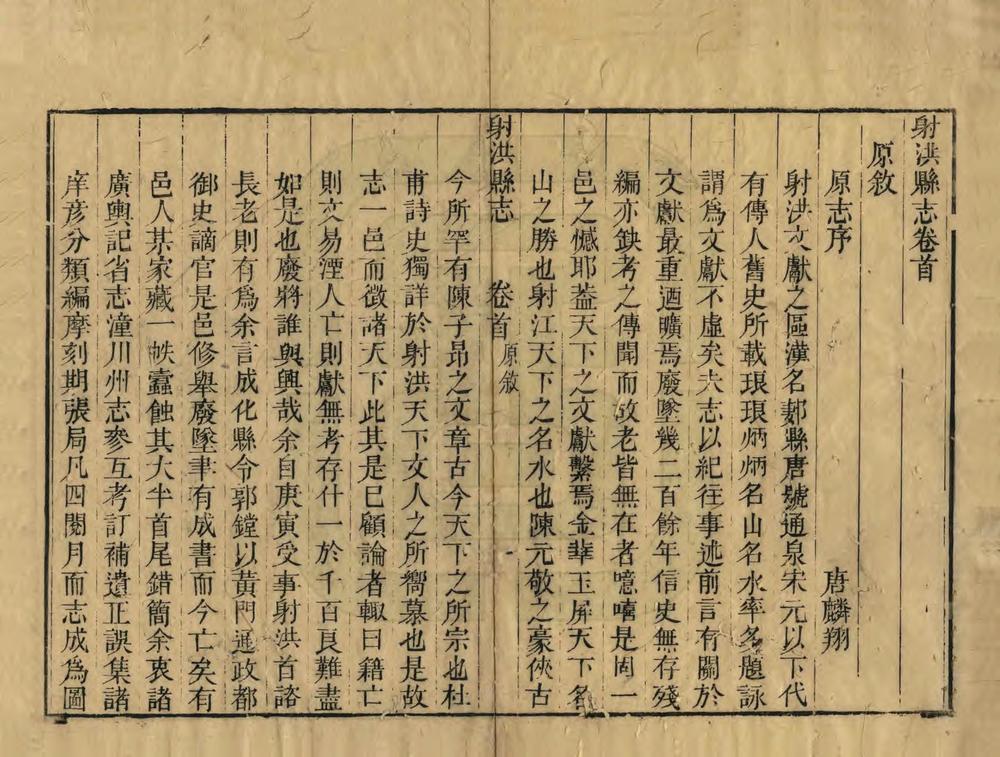 射洪縣志卷首
原敘
原志序
唐麟翔
射洪文獻之區漢名郪縣唐號通泉宋元以下代
有傳人舊史所載琅琅炳炳名山名水率多題詠
謂爲文獻不虛矣夫志以紀往事述前言有關於
文獻最重迺曠焉廢墜幾二百餘年信史無存殘
編亦缺考之傳聞而故老皆無在者噫嘻是固一
邑之憾耶葢天下之文獻繫焉金華玉屏天下名
山之勝也射江天下之名水也陳元敬之豪俠古
射洪縣志 卷首 原敘
今所罕有陳子昂之文章古今天下之所宗也杜
甫詩史獨詳於射洪天下文人之所嚮慕也是故
志一邑而徵諸天下此其是已顧論者輙曰籍亡
則文易湮人亡則獻無考存什一於千百良難盡
如是也廢將誰與興哉余自庚寅受事射洪首諮
長老則有爲余言成化縣令郭鏜以黃門通政都
御史謫官是邑修舉廢墜聿有成書而今亡矣有
邑人某家藏一帙蠹蝕其大半首尾錯簡余裒諸
廣輿記省志潼川州志參互考訂補遺正誤集諸
庠彥分類編摩刻期張局凡四閱月而志成爲圖